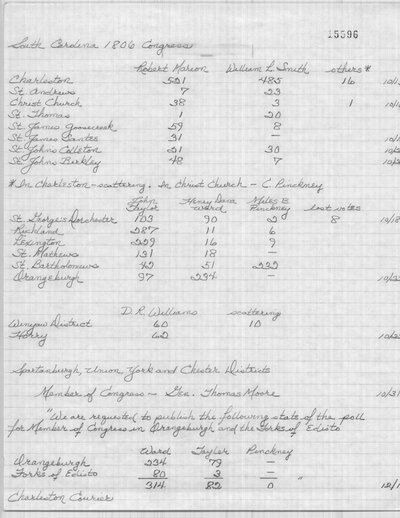 15596
South Carolina 1806 Congress
Robert Marion William L Smith others *
Charleston 521 485 16 10/1
St. Andrews 7 23
Christ Church 38 3 1 10/1
St. Thomas 1 20
St. James Goosecreek 59 8
St. James Santee 31 — 10/
St. Johns Colleton 21 30 10/2
St. Johns Berkley 48 7 10/2
* In Charleston - scattering. In Christ Church - C. Pinckney
John Taylor Henry Dana Ward Myles B Pinckney lost votes
St. George's Dorchester 103 90 2 8 10/18
Richland 287 11 6
Lexington 229 16 9
St. Mathews 131 18 —
St. Bartholomews 42 51 222
Orangeburgh 97 234 — 10/2
D. R. Williams scattering
Winyaw District 60 10
Horry 62 10/2
Spartanburgh, Union, York and Chester Districts
Member of Congress - Gen. Thomas Moore 10/31
"We are requested to publish the following state of the poll
for Member of Congress in Orangeburgh and the Forks of Edisto
Ward Taylor Pinckney
Orangeburgh 234 79 —
Forks of Edisto 80 3 — "
314 82 0 12/1
Charleston Courier